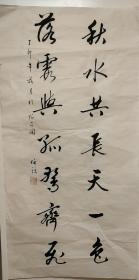 秋水共長天一色
落霞與孤鶩齊飛